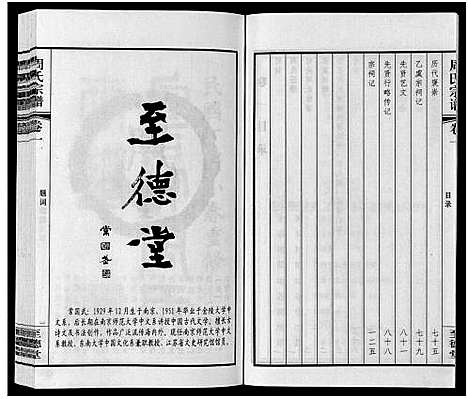 周氏宗谱
卷一
目录
至德堂
历代褒崇
七十五
乙虞宗祠记
七十九
先贤艺文
八十一
先贤行略传记
八十八
宗祠记
一二五
至德堂
常国武
常国武：1929年12月生于南京、1951年毕业于金陵大学中
文系。后长期在南京师范大学中文系讲授中国古代文学。擅长古
诗文及书法创作。作品广泛流传海内外。现任南京师范大学中
文系教授、东南大学中国文化系兼职教授、江苏省文史研究馆馆员。
周氏宗谱
卷一
题词
一
至德堂